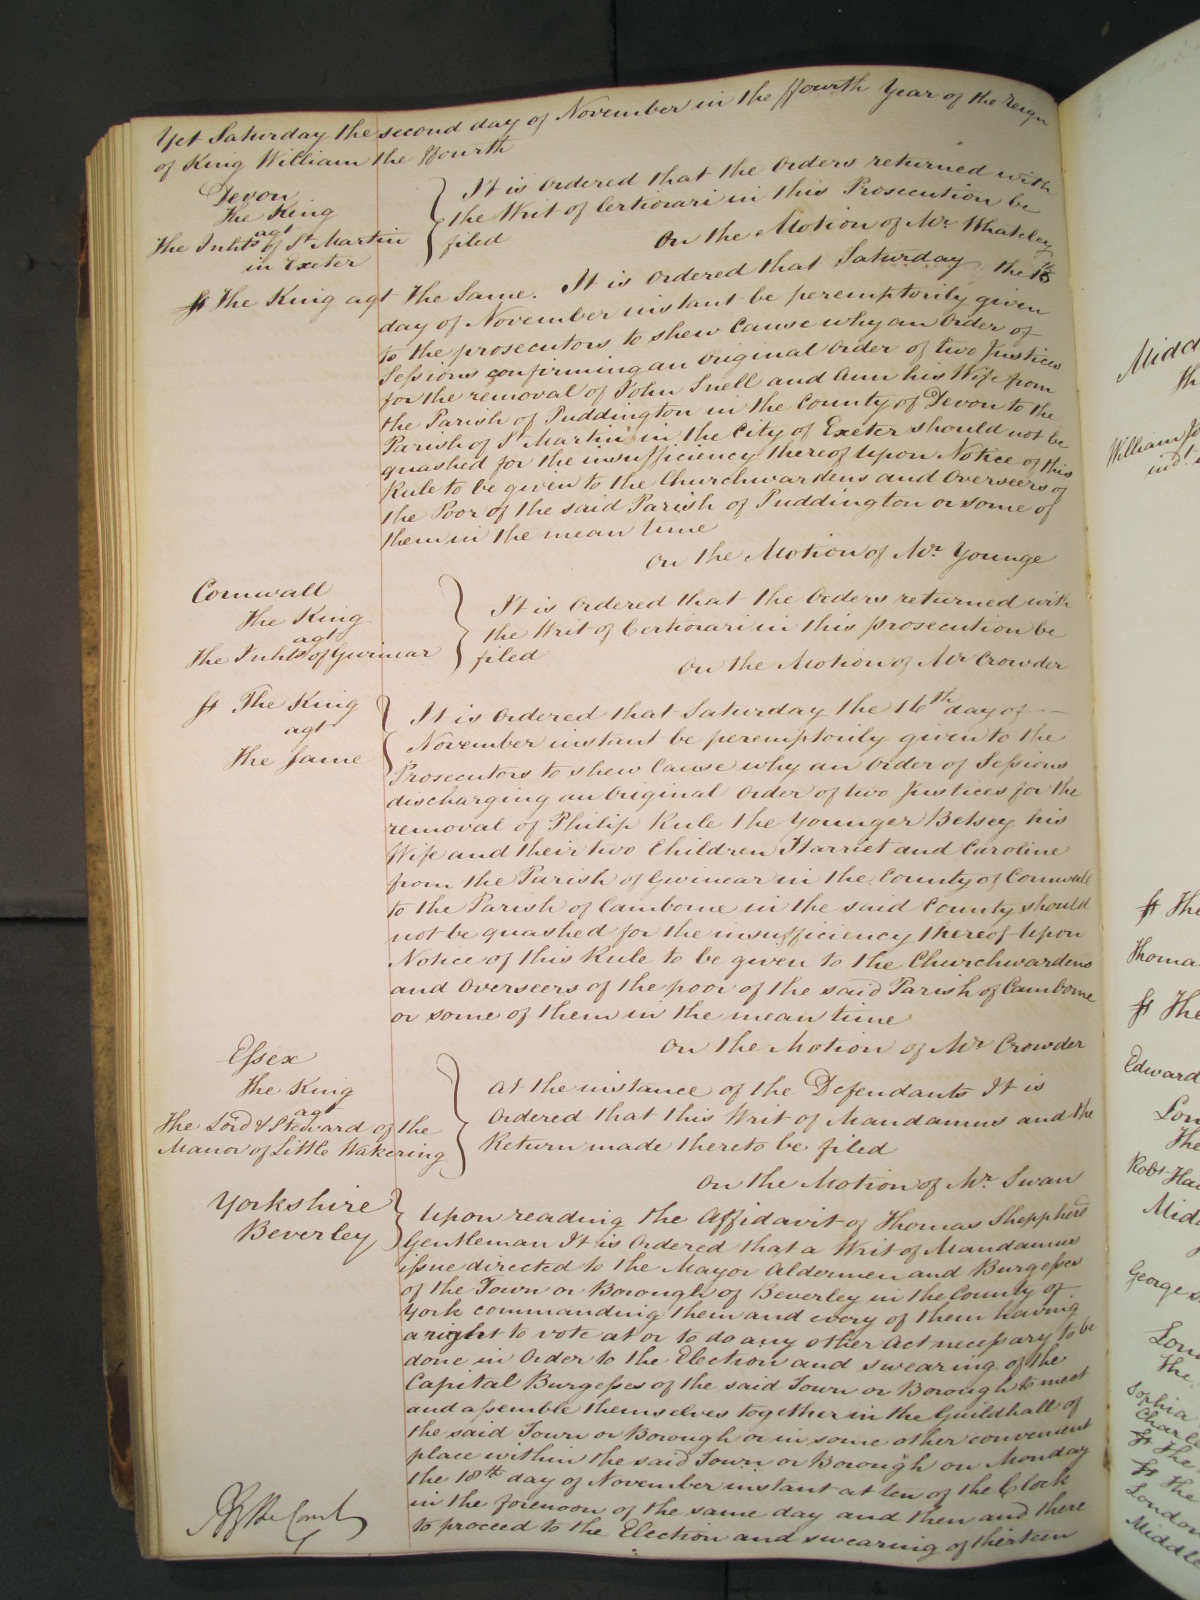 Yet Saturday the second day of November in the ffourth Year of the Reign
of King William the ffourth
Devon
The King
agt
The Inhts of St Martin
in Exeter
It is Ordered that the Orders returned with
the Writ of Certiorari in this Prosecution be
filed
On the Motion of Mr Whateley
The King agt The Same. It is Ordered that Saturday the 16th
day of November instant be peremptorily given
to the prosecutors to shew Cause why an Order of
Sessions confirming an Original Order of two Justices
for the removal of John Snell and Ann his Wife from
the Parish of Puddington in the County of Devon to the
Parish of St Martin in the City of Exeter should not be
quashed for the insufficiency thereof Upon Notice of this
Rule to be given to the Churchwardens and Overseers of
the Poor of the said Parish of Puddington or some of
them in the mean time
On the Motion of Mr Younge
Cornwall
The King
agt
The Inhts of Gwinear
It is Ordered that the Orders returned with
the Writ of Certiorari in this prosecution be
filed
On the Motion of Mr Crowder
The King
agt
The Same
It is Ordered that Saturday the 16th day of
November instant be peremptorily given to the
Prosecutors to shew Cause why an Order of Sessions
discharging an Original Order of two Justices for the
removal of Philip Rule the Younger Betsey his
Wife and their two Children Harriet and Caroline
from the Parish of Gwinear in the County of Cornwall
to the Parish of Camborne in the said County should
not be quashed for the insufficiency thereof Upon
Notice of this Rule to be given to the Churchwardens
and Overseers of the poor of the said Parish of Camborne
or some of them in the mean time
On the Motion of Mr Crowder
Essex
The King
agt
The Lord & Steward of the
Manor of Little Wakering
At the instance of the Defendants It is
Ordered that this Writ of Mandamus and the
Return made thereto be filed
On the Motion of Mr Swan
Yorkshire
Beverley
Upon reading the Affidavit of Thomas Shepherd
Gentleman It is Ordered that a Writ of Mandamus
issue directed to the Mayor Aldermen and Burgesses
of the Town or Borough of Beverley in the County of
York commanding them and every of them having
a right to vote at or to do any other Act necessary to be
done in Order to the Election and swearing of the
Capital Burgesses of the said Town or Borough to meet
and assemble themselves together in the Guildhall of
the said Town or Borough or in some other convenient
place within the said Town or Borough on Monday
the 18th day of November instant at ten of the Clock
in the forenoon of the same day and then and there
to proceed to the Election and swearing of thirteen
By the Court
Midd
Th
William
The
Thoma
The
Edward
Lon
The
Robt Ha
Mid
George
Lon
The
Sophia
Charl
The
The
London
Middle